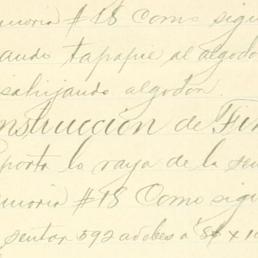 moria #18 Como sigu
ando tapapie al algodon
sahijando algodon
nstrucción de Fin
porta lo raya de la sem
moria #18 Como sigu
sentar 592 adobes a $